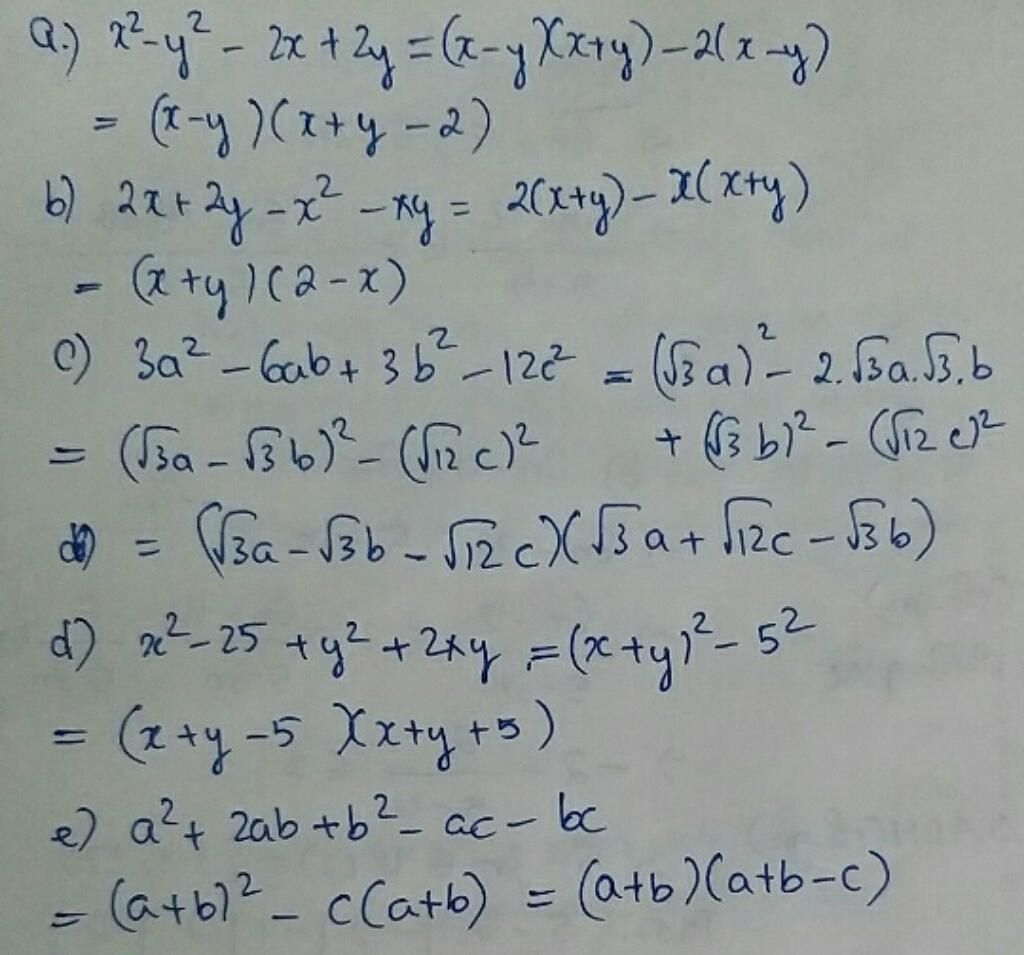 a.) x² - y² - 2x + 2y = (x-y)(x+y) - 2(x-y)
= (x-y)(x+y-2)
b) 2x + 2y - x² - xy = 2(x+y) - x(x+y)
= (x+y)(2-x)
c) 3a² - 6ab + 3b² - 12c² = (√3a)² - 2.√3a.√3.b
= (√3a - √3b)² - (√12 c)² + (√3 b)² - (√12 c)²
= (√3a - √3b - √12 c)(√3a + √12c - √3b)
d) x² - 25 + y² + 2xy = (x+y)² - 5²
= (x+y-5)(x+y+5)
e) a² + 2ab + b² - ac - bc
= (a+b)² - c(a+b) = (a+b)(a+b-c)